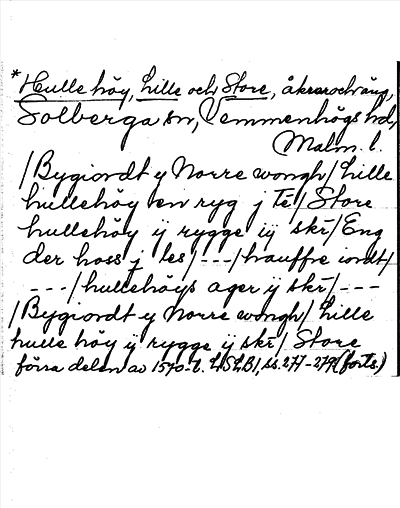 *Hulle höy, Lille och Store, åkrar och äng,
Solberga sn, Vemmenhögs hd,
Malm. l.
/Bygiordt y Norre wongh/ Lille
hullehöy en ryg j Té/ Store
hullehöy ij rygge iij skr̄/ Eng
der hoss j les/ ---/ hauffre iordt/
---/ hullehöys ager ij skr̄/ ---
/Bygiordt y Norre wongh/ Lille
hulle höy ij rygge ij skr̄/ Store
förra delen av 1570-t. LSLB1, ss. 277-279 (forts.)